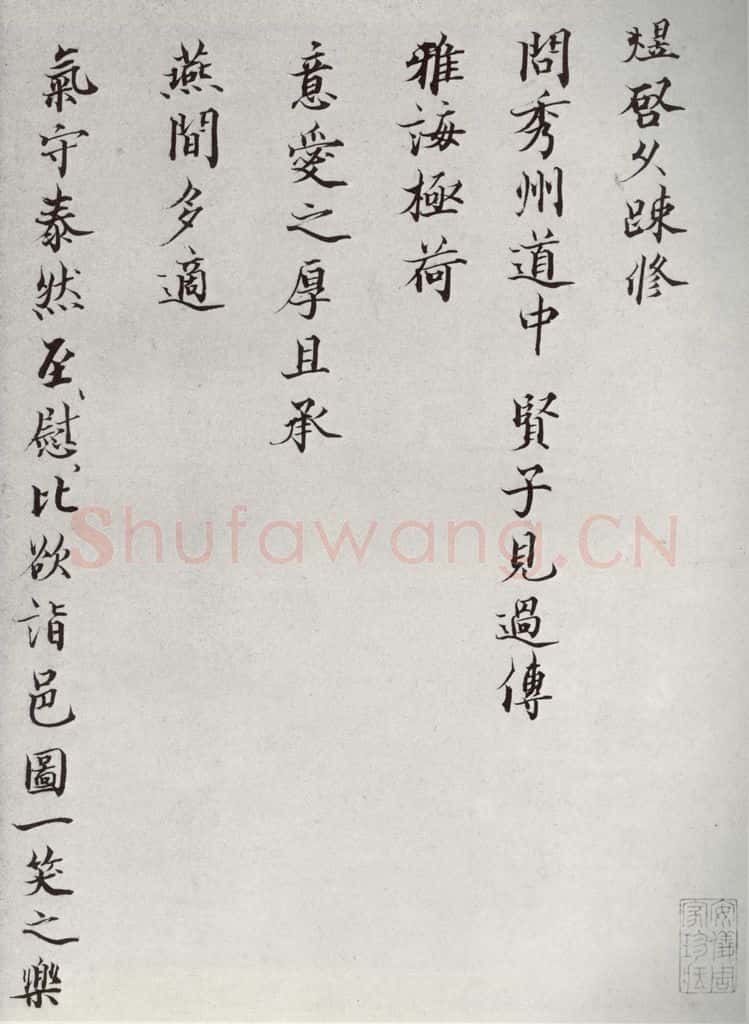 煜啓久踈修
問秀州道中 賢子見過傳
雅誨極荷
意愛之厚且承
燕閒多適
氣守泰然至慰至慰比欲詣邑圖一笑之樂
Shufawang.CN
安儀周家珍藏